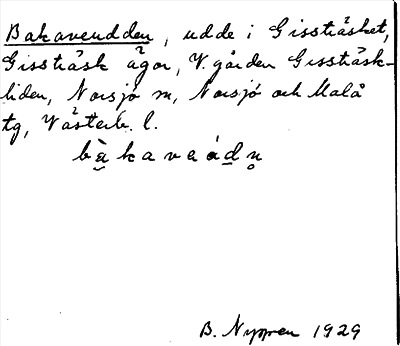 Bakaveudden, udde i Gissträsket,
Gissträsk ägor, V. gården Gissträsk-
liden, Norsjö sn, Norsjö och Malå
tg, Västerb. l.
B. Nyman 1929